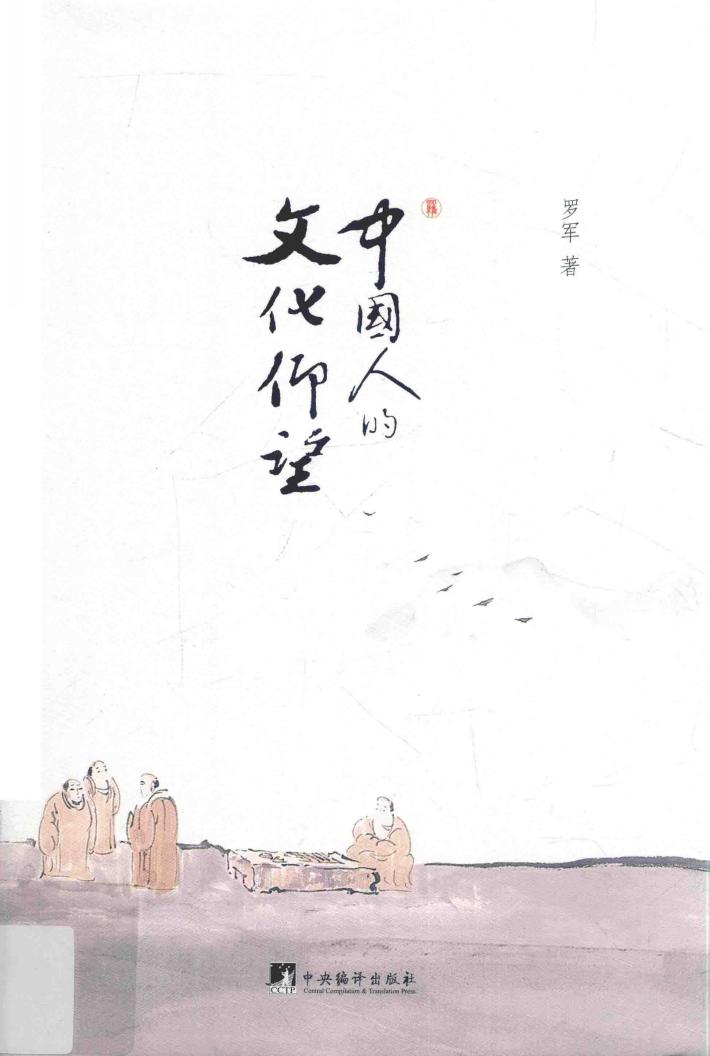 中國人的
文化仰望
罗军 著
CCTP
中央编译出版社
Central Compilation & Translation Press